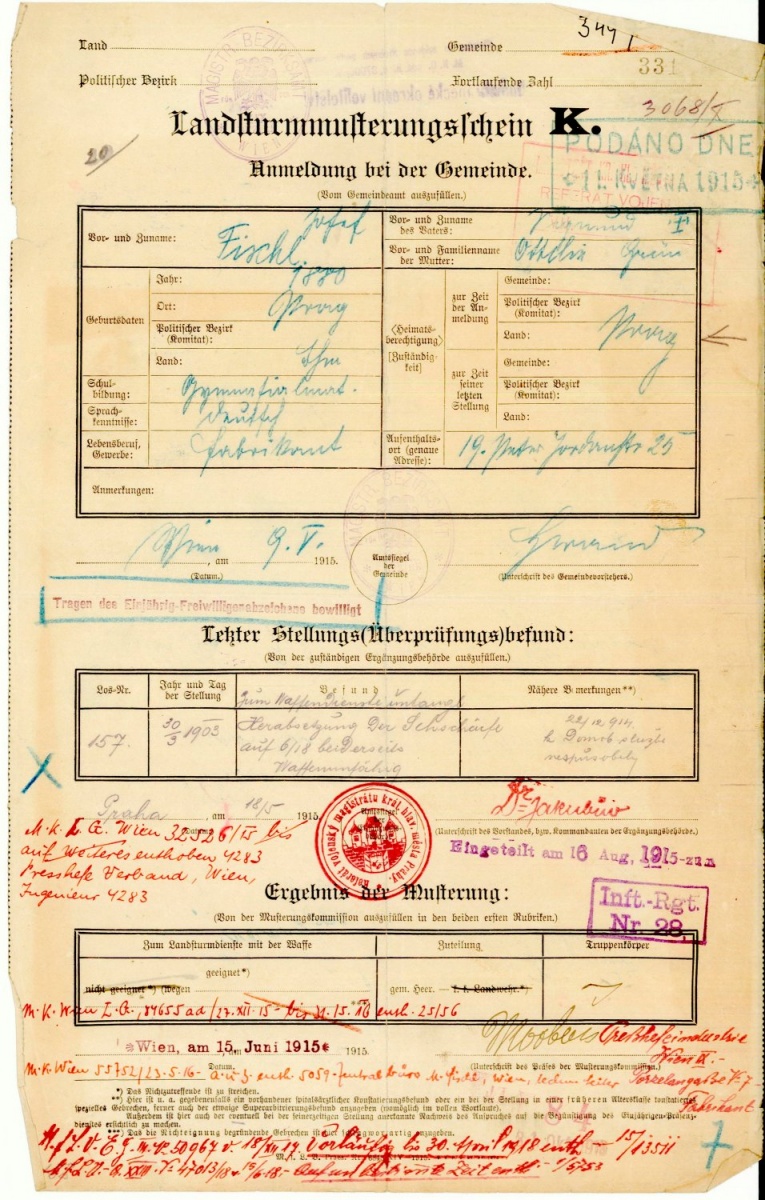 3441
Land Gemeinde
331
Politischer Bezirk Fortlaufende Zahl
MAGISTR. BEZIRKSAMT WIEN
3068/X
20
Landsturmmusterungsschein K.
PODÁNO DNE
11. KVĚTNA 1915
REFERÁT VOJEN
Anmeldung bei der Gemeinde.
(Vom Gemeindeamt auszufüllen.)
Vor- und Zuname: Fischl Josef
Vor- und Zuname des Vaters: Sigmund
Vor- und Familienname der Mutter: Ottilie Grün
Geburtsdaten
Jahr: 1880
Ort: Prag
Politischer Bezirk (Komitat):
Land: Bhm
Schulbildung: Gymnasialmat.
Sprachkenntnisse: deutsch
Lebensberuf, Gewerbe: Fabrikant
(Heimatsberechtigung) [Zuständigkeit]
zur Zeit der Anmeldung
Gemeinde:
Politischer Bezirk (Komitat):
Land: Prag
zur Zeit seiner letzten Stellung
Gemeinde:
Politischer Bezirk (Komitat):
Land:
Aufenthaltsort (genaue Adresse): 19. Peter Jordanstr 25
Anmerkungen:
Wien, am 9. V. 1915.
(Datum.)
Amtssiegel der Gemeinde
(Unterschrift des Gemeindevorstehers.)
Tragen des Einjährig-Freiwilligenabzeichens bewilligt
Letzter Stellungs(Überprüfungs)befund:
(Von der zuständigen Ergänzungsbehörde auszufüllen.)
Los-Nr. Jahr und Tag der Stellung Befund Nähere Bemerkungen**)
157. 30/3 1903
Zum Waffendienste untaugl.
Herabsetzung der Sehschärfe
auf 6/18 beiderseits
Waffenunfähig
22/12 1914
k domob. službě
nespůsobilý
Praha, am 18/5 1915
Datum.
Referát vojenský magistrátu král. hlav. města Prahy.
Dr Jakubův
(Unterschrift des Vorstandes, bzw. Kommandanten der Ergänzungsbehörde.)
M.K. L.A. Wien 32526/15 bis
auf weiteres enthoben 4283
Presshefe Verband, Wien,
Ingenieur 4283
Eingeteilt am 16 Aug. 1915 zum
Inft.-Rgt.
Nr. 28.
Ergebnis der Musterung:
(Von der Musterungskommission auszufüllen in den beiden ersten Rubriken.)
Zum Landsturmdienste mit der Waffe Zuteilung Truppenkörper
geeignet*)
nicht geeignet*) (wegen
gem. Heer. — k. k. Landwehr.*)
M.K. Wien L.A., 84655 ad/27.XII.15 - bis 31/5. 16 enth. 25/56
Wien, am 15. Juni 1915 1915.
Datum.
(Unterschrift des Präses der Musterungskommission.)
Presshefeindustrie
Wien IX.-
Porzelangasse No 7
Fabrikant
M.K. Wien 55752/23.5.16 - a.u.f. enth 5059 - Zentralbüro
*) Das Nichtzutreffende ist zu streichen.
**) Hier ist u. a. gegebenenfalls ein vorhandener spitalsärztlicher Konstatierungsbefund oder ein bei der Stellung in einer früheren Altersklasse konstatiertes
spezielles Gebrechen, ferner auch der etwaige Superarbitrierungsbefund anzugeben (womöglich im vollen Wortlaute).
Außerdem ist hier auch der eventuell bei der seinerzeitigen Stellung anerkannte Nachweis des Anspruches auf die Begünstigung des Einjährigen-Präsenzdienstes ersichtlich zu machen.
***) Das die Nichteignung begründende Gebrechen ist hier anzugeben.
50967 v. 18/XII 17 Vorläufig bis 30. April 1918 enth - 15/13511
auf unbestimmte Zeit enth - 15/53